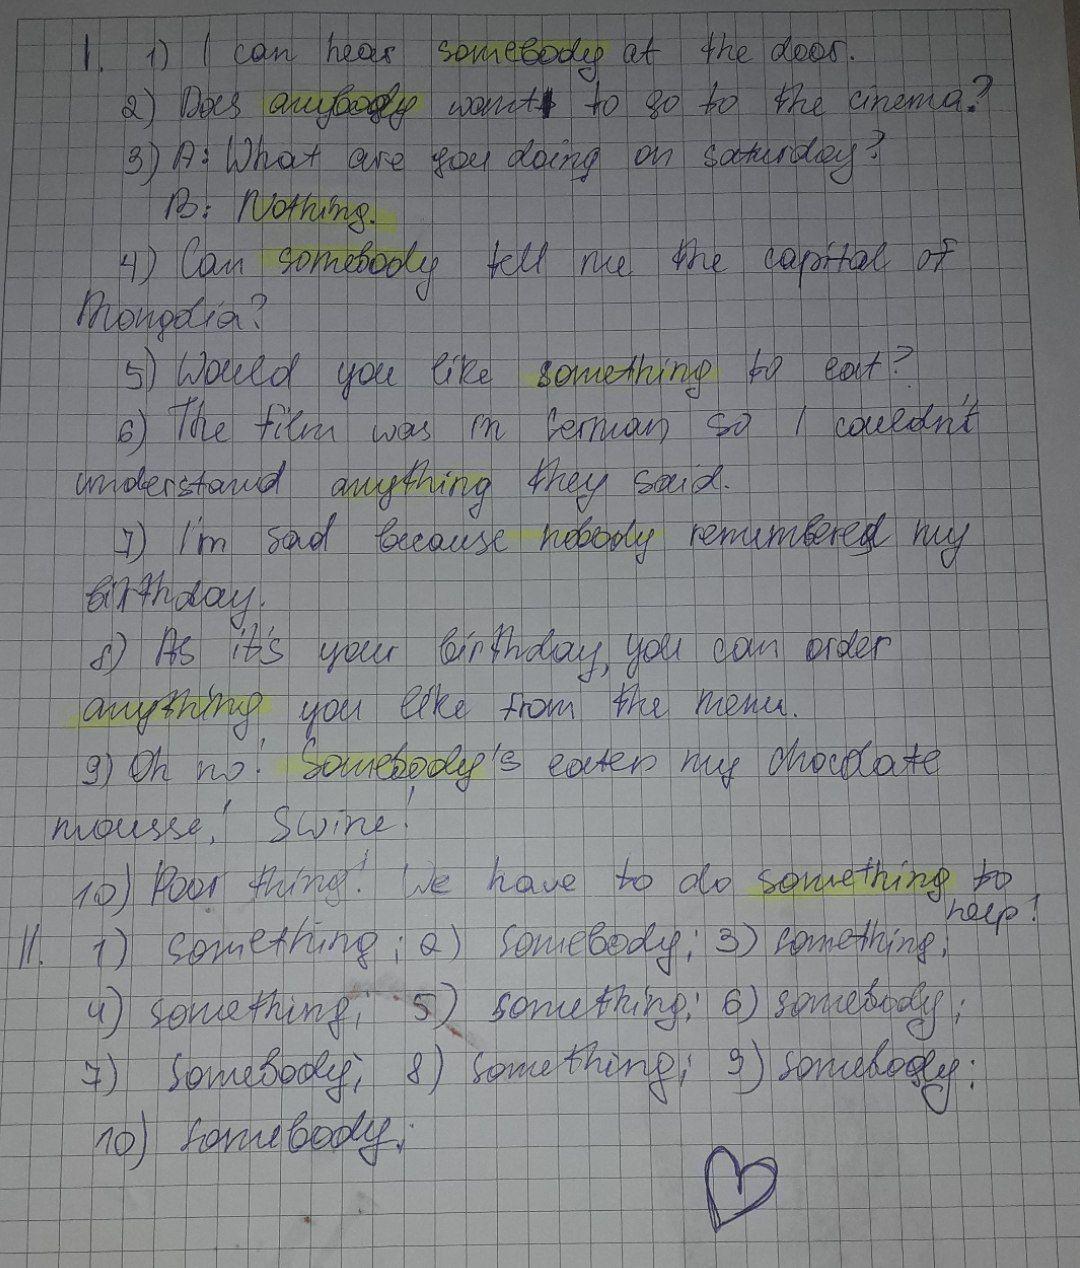 I. 1) I can hear somebody at the door.
2) Does anybody want to go to the cinema?
3) A: What are you doing on saturday?
B: Nothing.
4) Can somebody tell me the capital of
Mongolia?
5) Would you like something to eat?
6) The film was in German so I couldn't
understand anything they said.
7) I'm sad because nobody remembered my
birthday.
8) As it's your birthday, you can order
anything you like from the menu.
9) Oh no! Somebody's eaten my chocolate
mousse! Swine!
10) Poor thing! We have to do something to
help!
II. 1) something; 2) somebody; 3) something;
4) something; 5) something; 6) somebody;
7) somebody; 8) something; 9) somebody;
10) somebody;